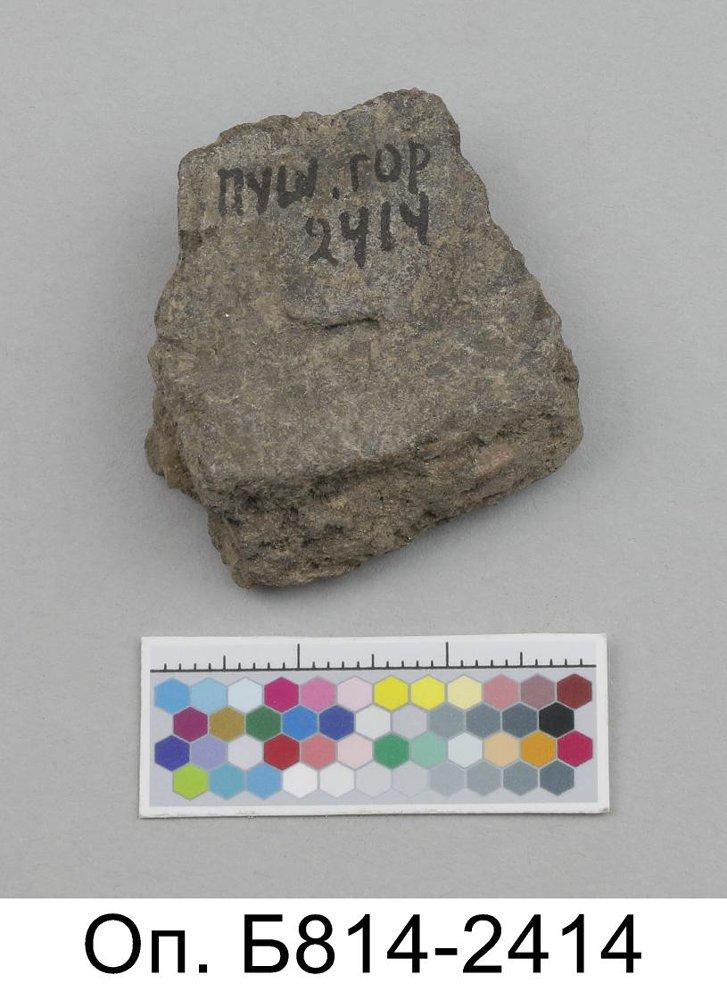 ПУШ.ГОР
2414
Оп. Б814-2414